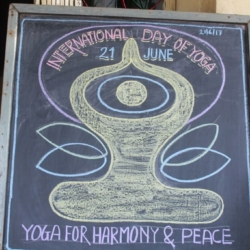 INTERNATIONAL DAY OF YOGA
21 JUNE
YOGA FOR HARMONY & PEACE